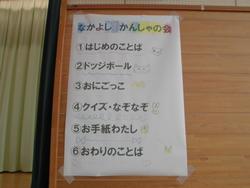 なかよし かんしゃの会
①はじめのことば
②ドッジボール
③おにごっこ
④クイズ・なぞなぞ
⑤お手紙わたし
⑥おわりのことば